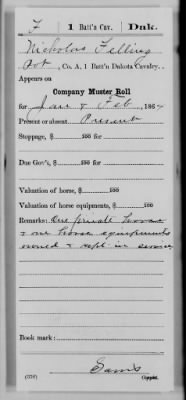 F 1 Batt'n Cav. Dak.
Nicholas Felling
Pvt, Co. A, 1 Batt'n Dakota Cavalry.
Appears on
Company Muster Roll
for Jan & Feb, 1864
Present or absent Present
Stoppage, $ 100
Due Gov't, $ 100
Valuation of horse, $ 100
Valuation of horse equipments, $ 100
Remarks: One private horse
& one horse equipments
owned & kept in service
Book mark:
(358) Copyist.